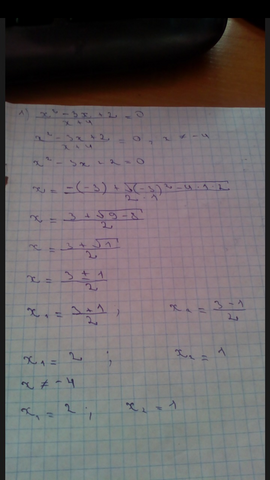 1) x² - 3x + 2 / x + 4 = 0
x² - 3x + 2 / x + 4 = 0, x ≠ -4
x² - 3x + 2 = 0
x = -(-3) ± √(-3)² - 4·1·2 / 2·1
x = 3 ± √9 - 8 / 2
x = 3 ± √1 / 2
x = 3 ± 1 / 2
x₁ = 3 + 1 / 2 ; x₂ = 3 - 1 / 2
x₁ = 2 ; x₂ = 1
x ≠ -4
x₁ = 2 ; x₂ = 1